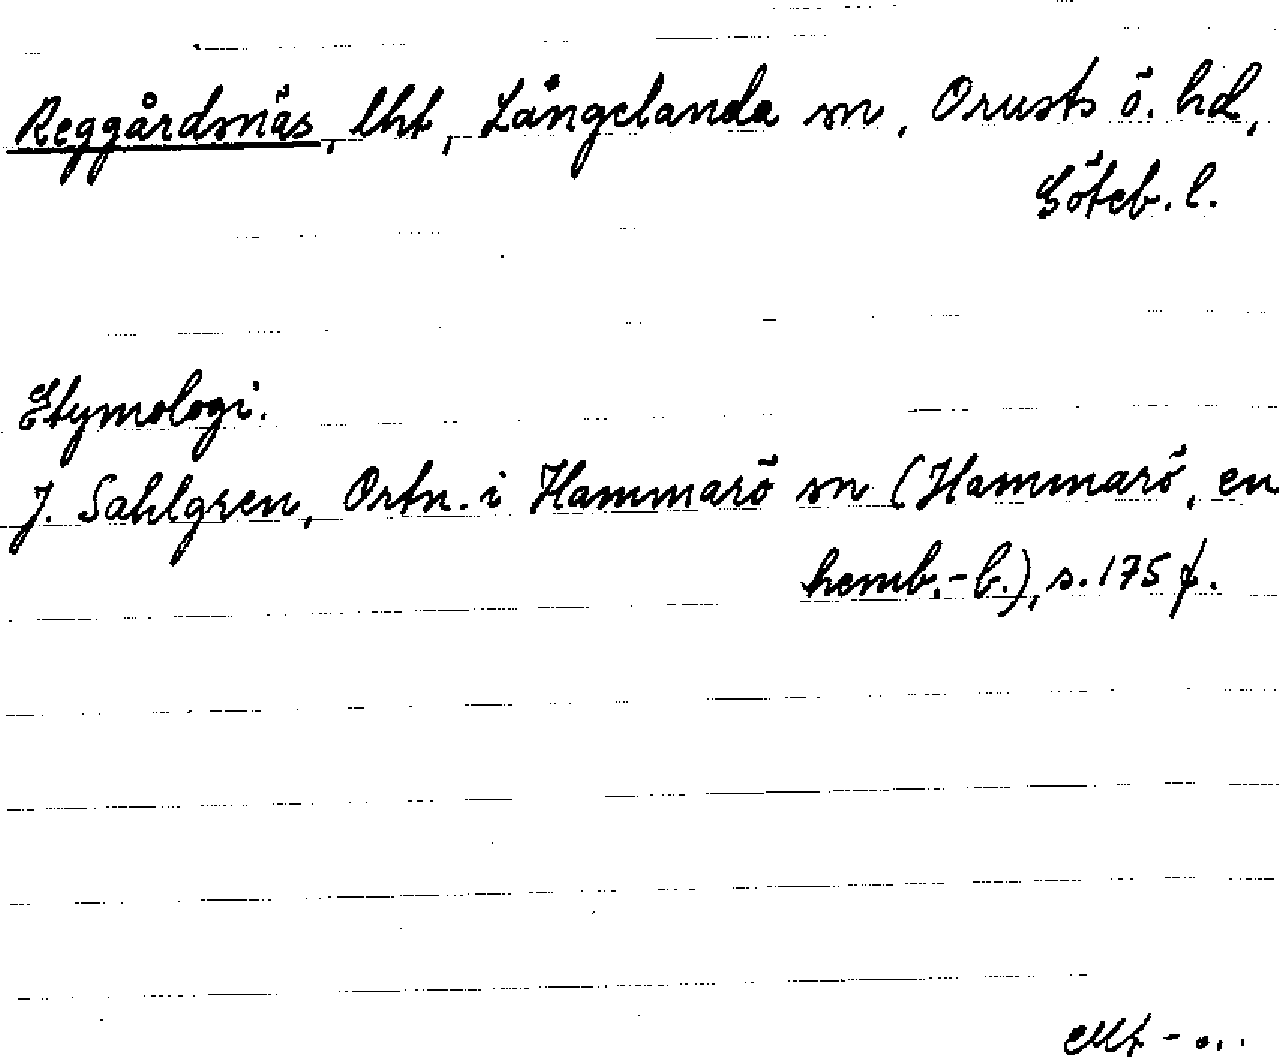 Reggårdsnäs, lht, Långelanda sn, Orusts ö. hd,
Göteb. l.
Etymologi.
J. Sahlgren, Ortn. i Hammarö sn (Hammarö, en
hemb.-b.), s. 175 f.